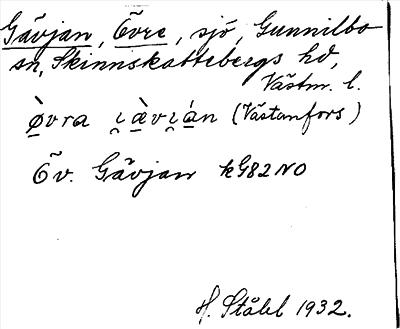 Gävjan, Övre, sjö, Gunnilbo
sn, Skinnskattebergs hd,
Västm. l.
ò̱vra ι̯ æ̀vι̯án (Västanfors)
Öv. Gävjan kG82NO
H. Ståhl 1932.